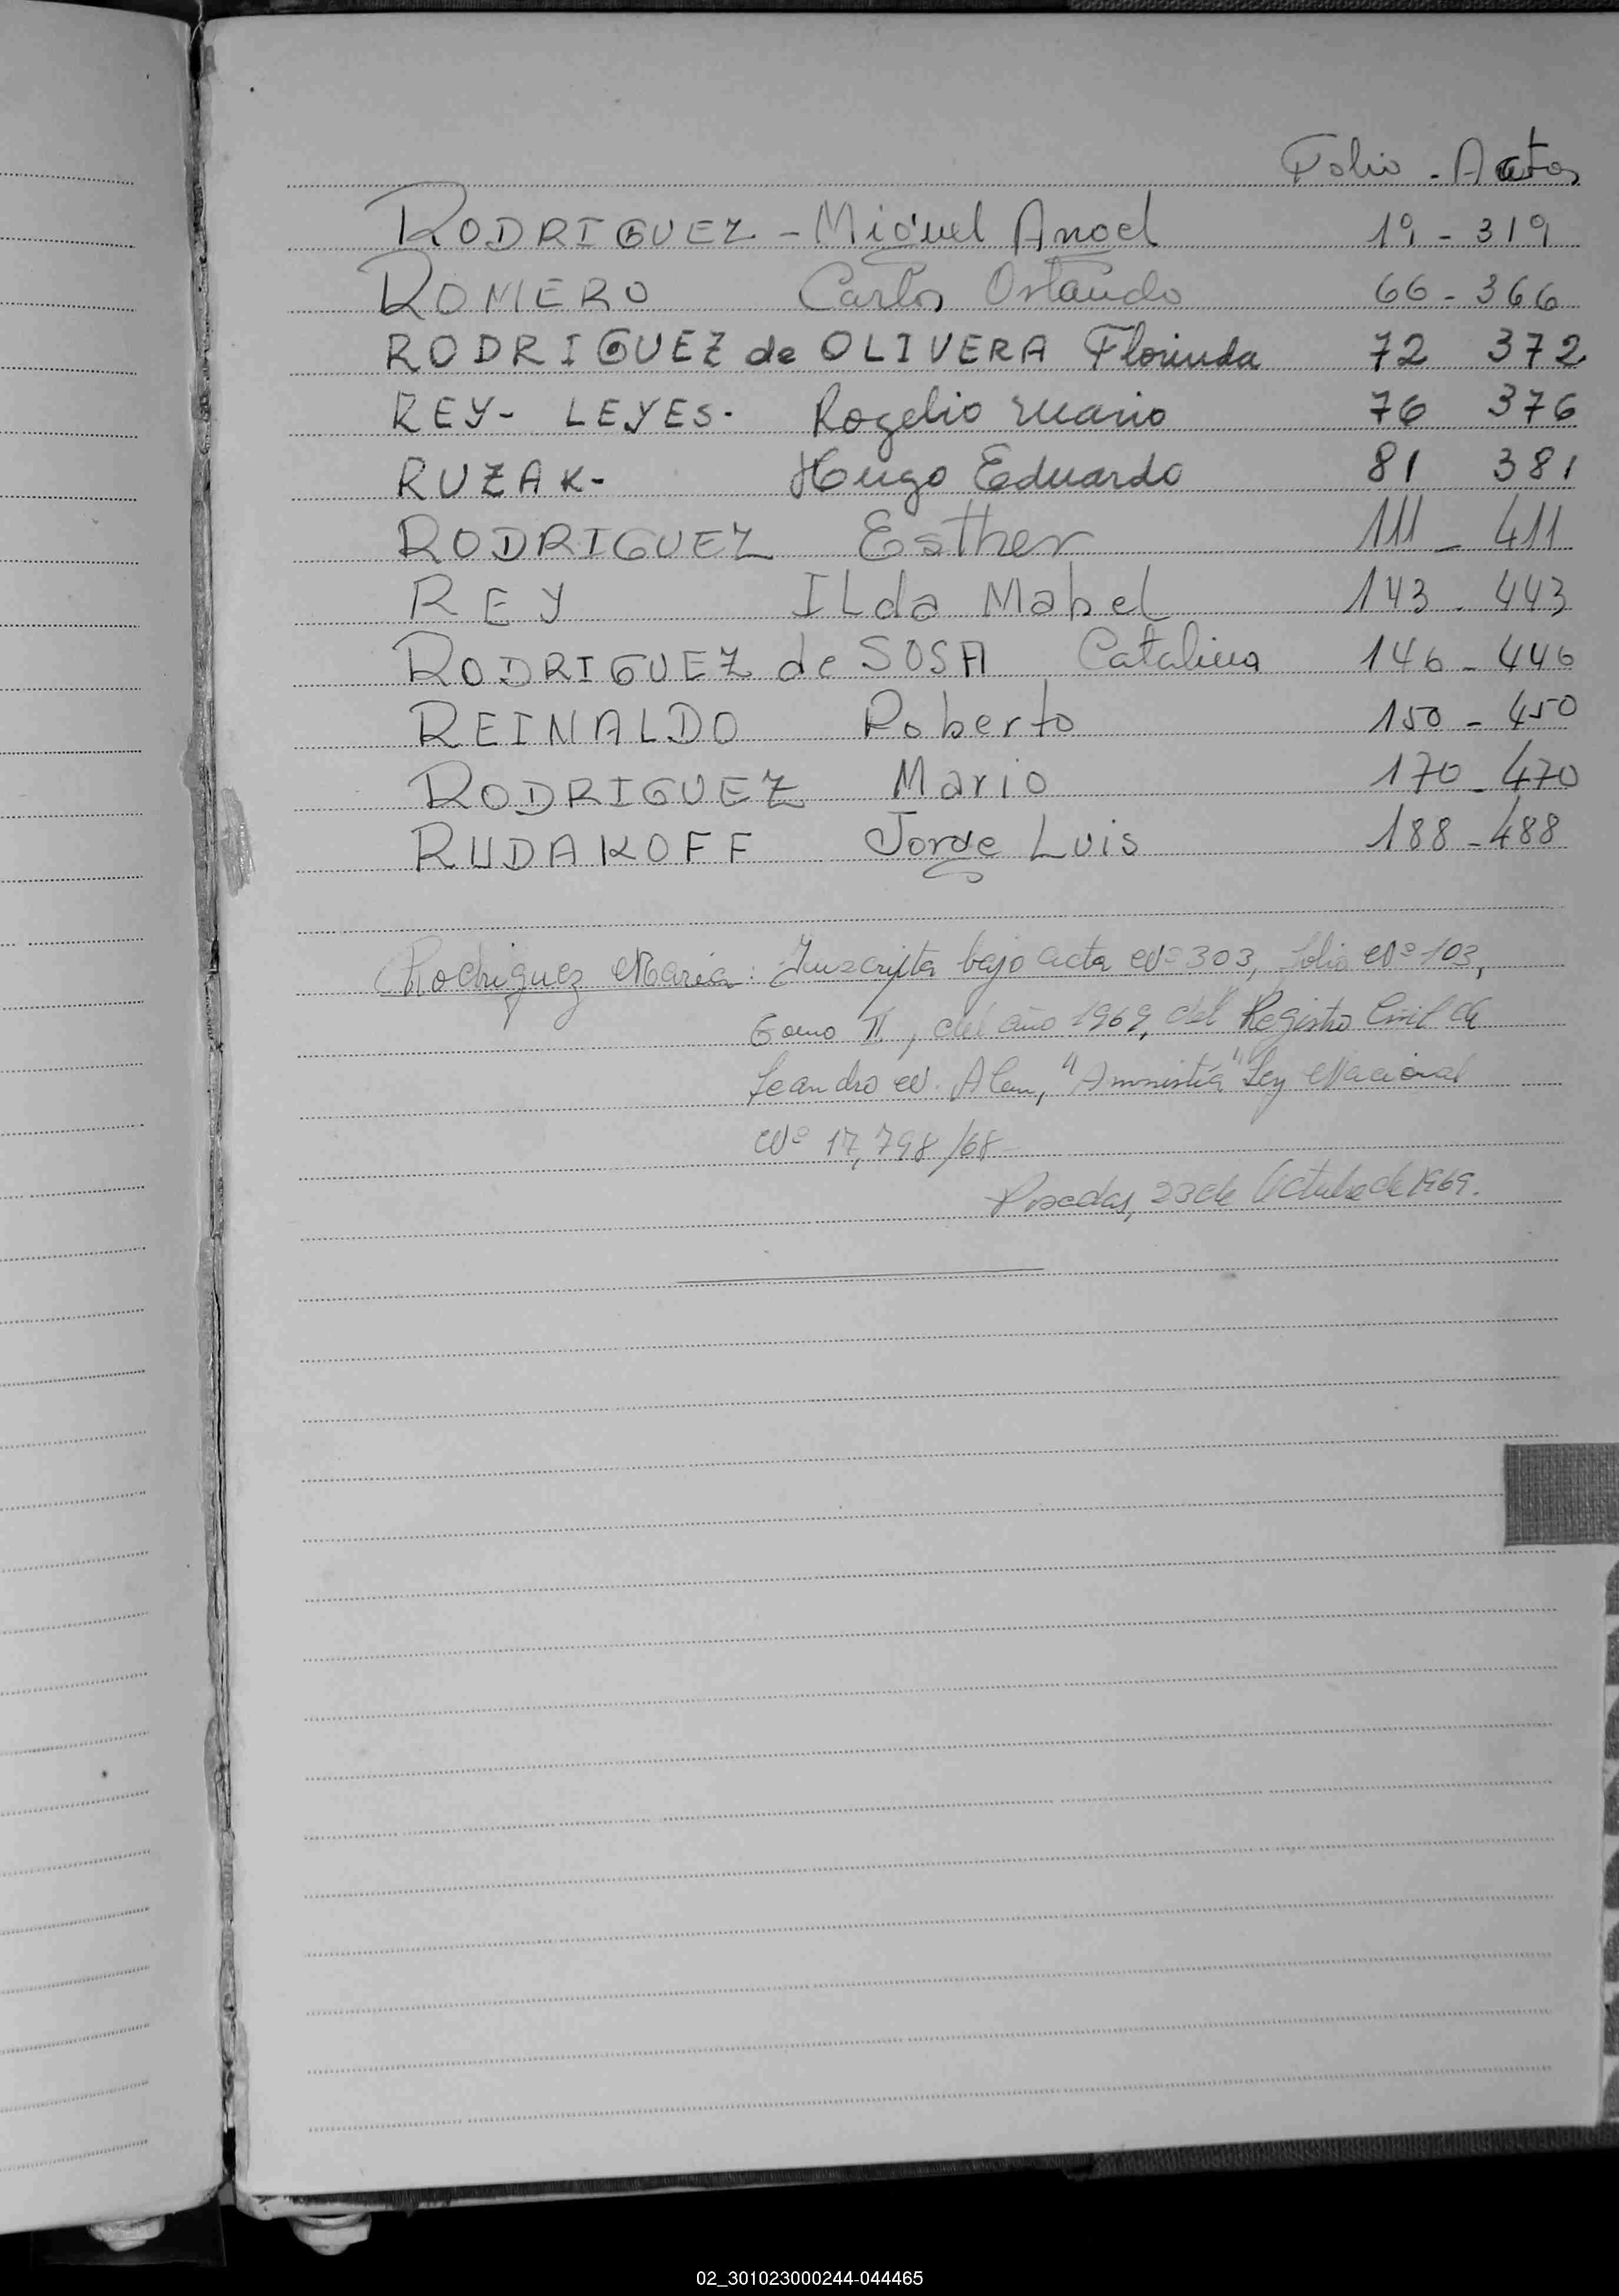 Folio - Actas
RODRIGUEZ - Miguel Angel 19 - 319
ROMERO Carlos Orlando 66 - 366
RODRIGUEZ de OLIVERA Florinda 72 372
REY- LEYES- Rogelio Mario 76 376
RUZAK- Hugo Eduardo 81 381
RODRIGUEZ Esther 111 - 411
REY ILda Mabel 143 - 443
RODRIGUEZ de SOSA Catalina 146 - 446
REINALDO Roberto 150 - 450
RODRIGUEZ Mario 170 - 470
RUDAKOFF Jorge Luis 188 - 488
Rodriguez Maria: Inscripta bajo acta Nº 303, folio Nº 103,
Tomo II, del año 1969, del Registro Civil de
Leandro N. Alem, "Amnistía" Ley Nacional
Nº 17,798/68
Posadas, 23 de Octubre de 1969.
02_301023000244-044465